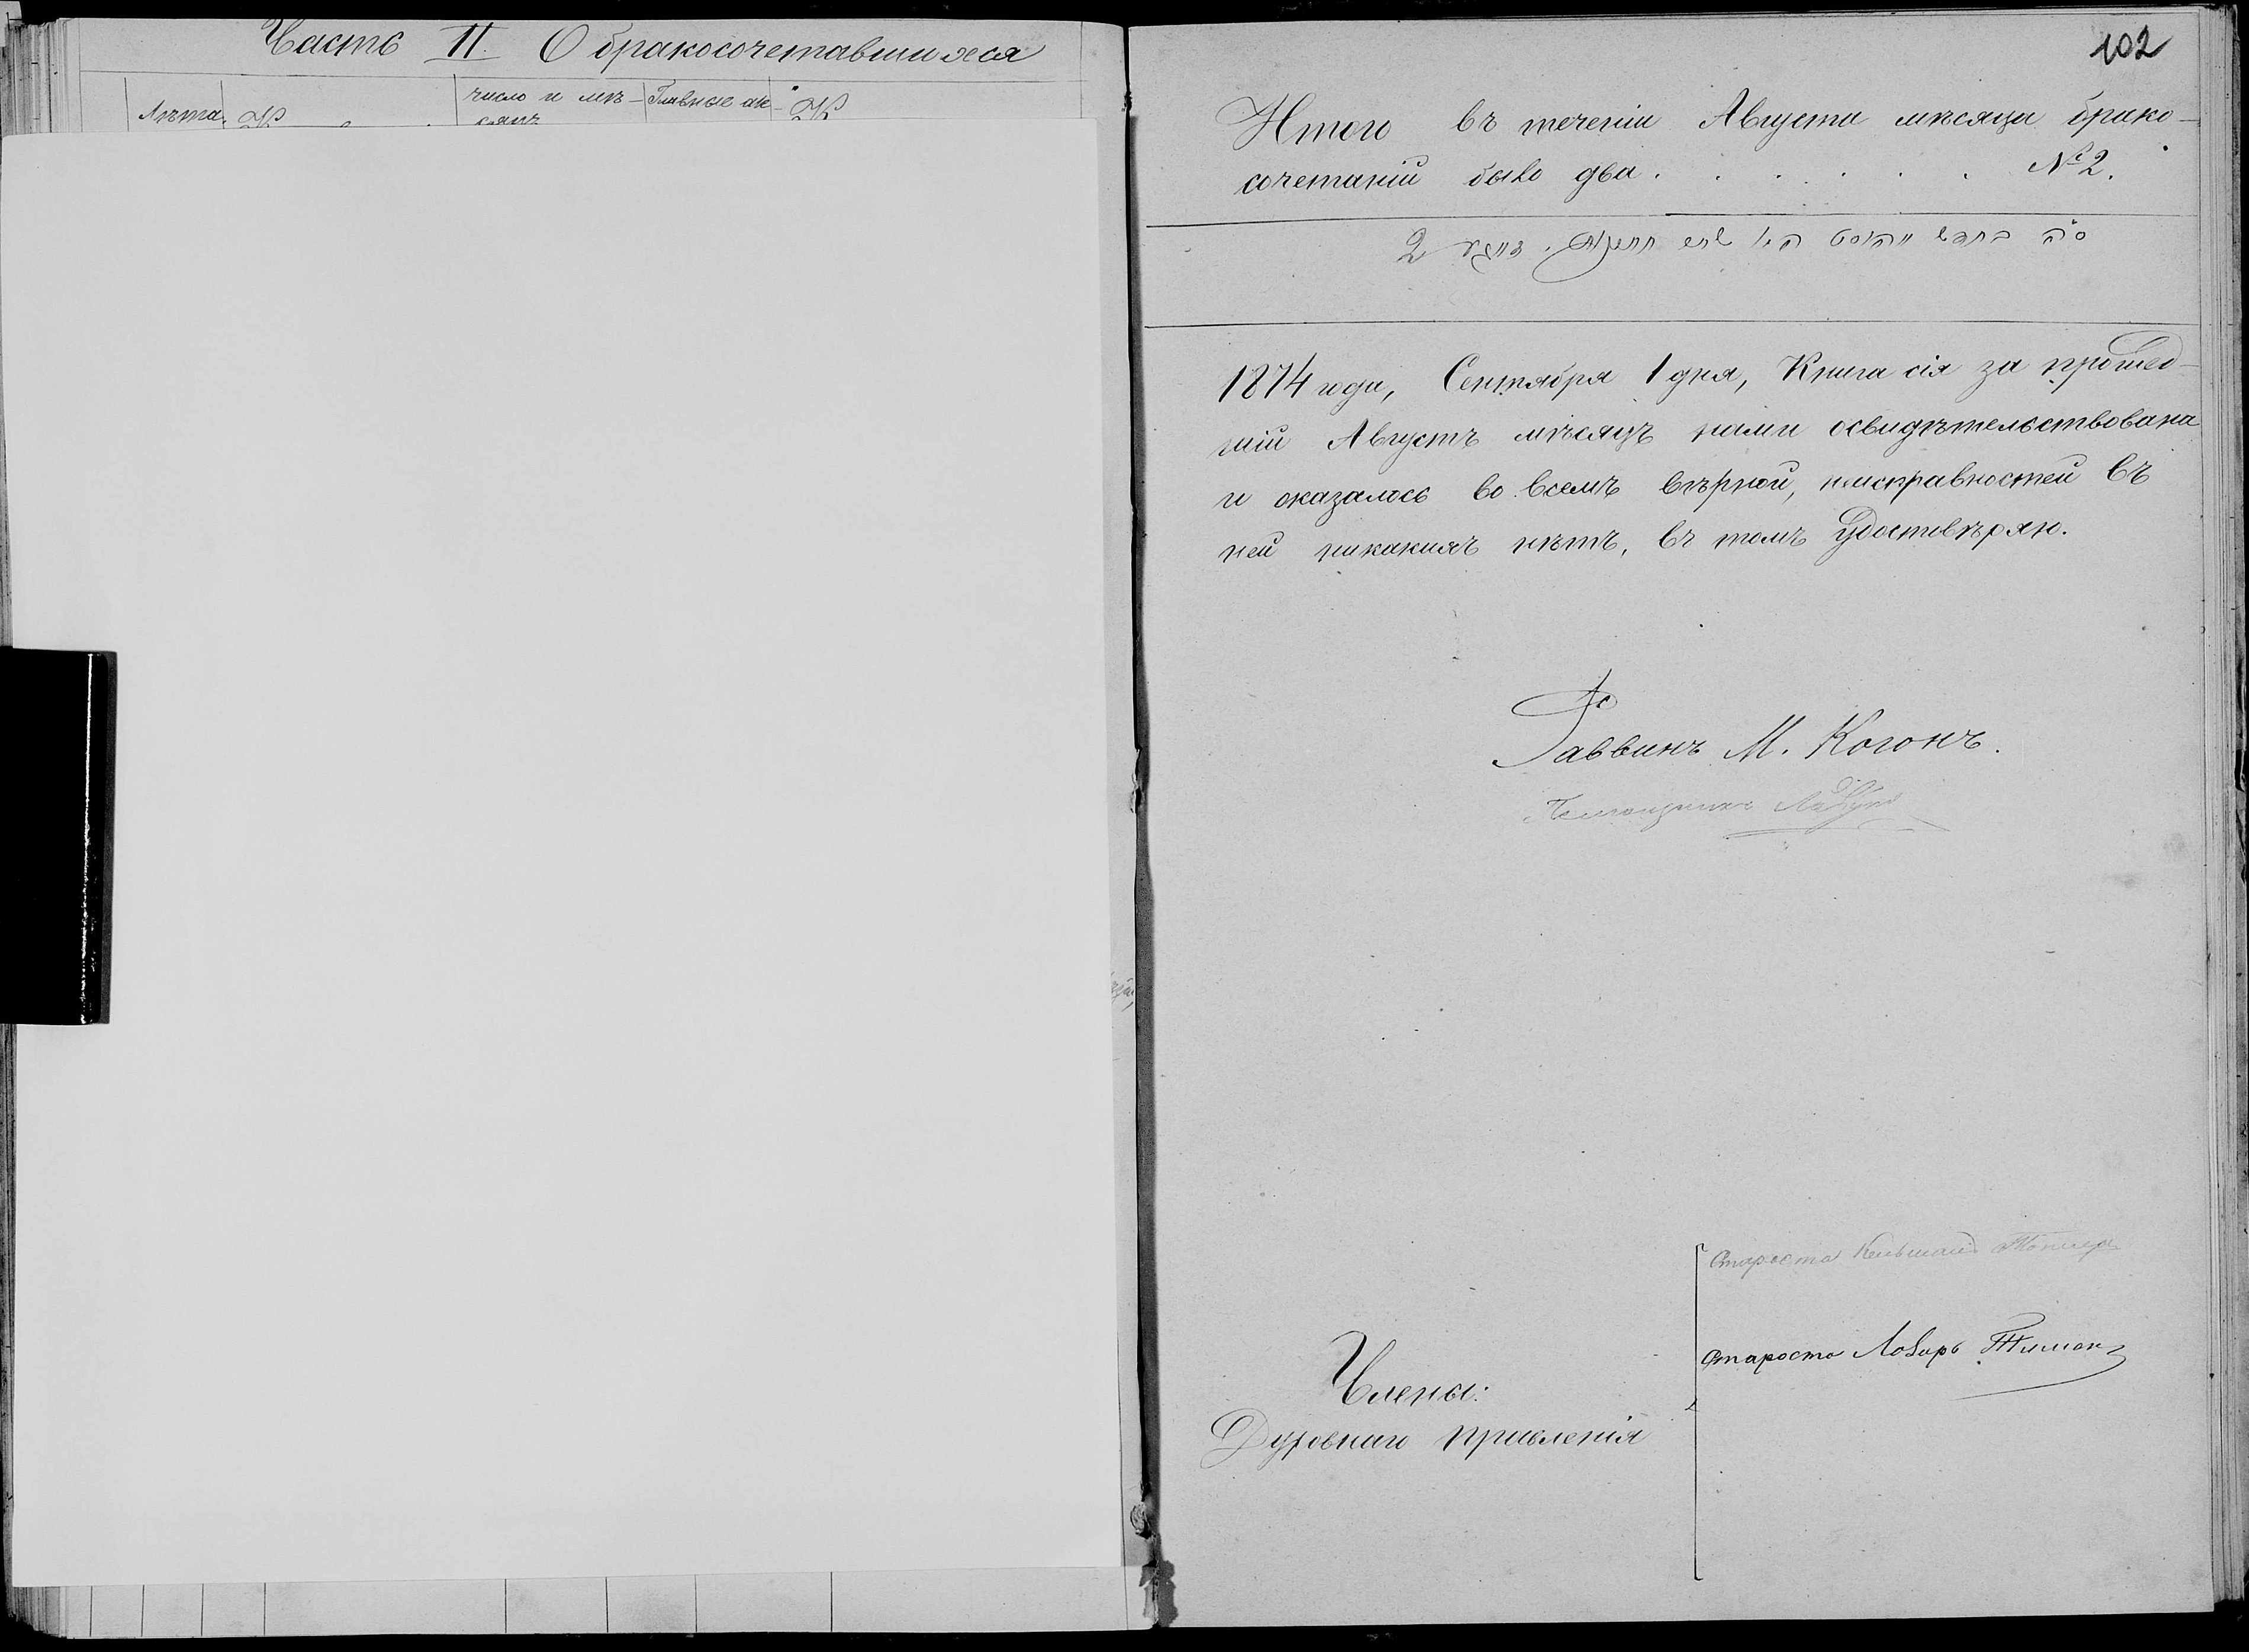 Часть II. О бракосочетавшихся
Лѣта.
число и мѣ-
Главные ак-
сяцъ
102
Итого въ теченіи Августа мѣсяца брако-
сочетаній было два . . . . . . . №2.
2
1874 года, Сентября 1 дня, Книга сія за прошед-
шій Августъ мѣсяцъ нами освидѣтельствована
и оказалось во всемъ вѣрной, неисправностей въ
ней никакихъ нѣтъ, въ томъ удостовѣряю.
Раввинъ М. Когонъ.
Староста
староста Лозаръ
Члены:
Духовнаго правленія